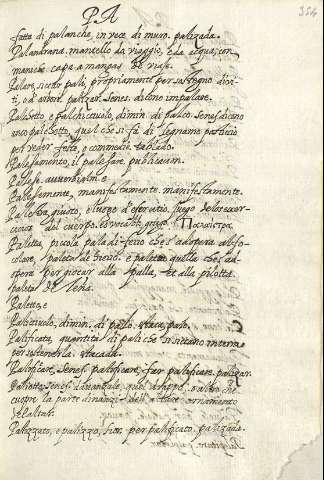 PA
354
fatta di palanche, in vece di muro. palizada.
Palandrana. mantello da viaggio, e da acqua, con
maniche. capa a mangas de viaje.
Palare, ficcar pali, propriamente per sostegno di vi-
ti, o d'arbori. palizar. Senes. dicono impalare.
Palchetto, e palchicciuolo, dimin. di palco. Senes. dicono
anco palchetto, quel che si fà di legname posticcio
per veder feste, e commedie. tablado.
Palesamento, il palesare. publicacion.
Palese. auverbialm. e
Palesemente, manifestamente. manifestamente.
Palestra, giuoco, e luogo d'esercitio. juego
del cuerpo. è vocabolo grego.
Paletta, piccola pala di ferro che s'adopera al fo-
colare, paleta de hierro. e paletta quella che s'ado-
pera per giocar alla palla, et alla pilotta.
paleta de leña.
Paletto, e
Paliciuolo, dimin. di palo. estaca, palo.
Palificata, quantità di pali che si ficcano in terra
per sostenerla. estacada.
Palificare, Senes. palificare, far palificate. palizar.
Paliotto, Senes. d'avanzale, quel drappo, o altro che
cuopre la parte dinanzi dell'altare. ornamento
del altar.
Palizzato, e palizzo, Fior. per palificato. palizada.